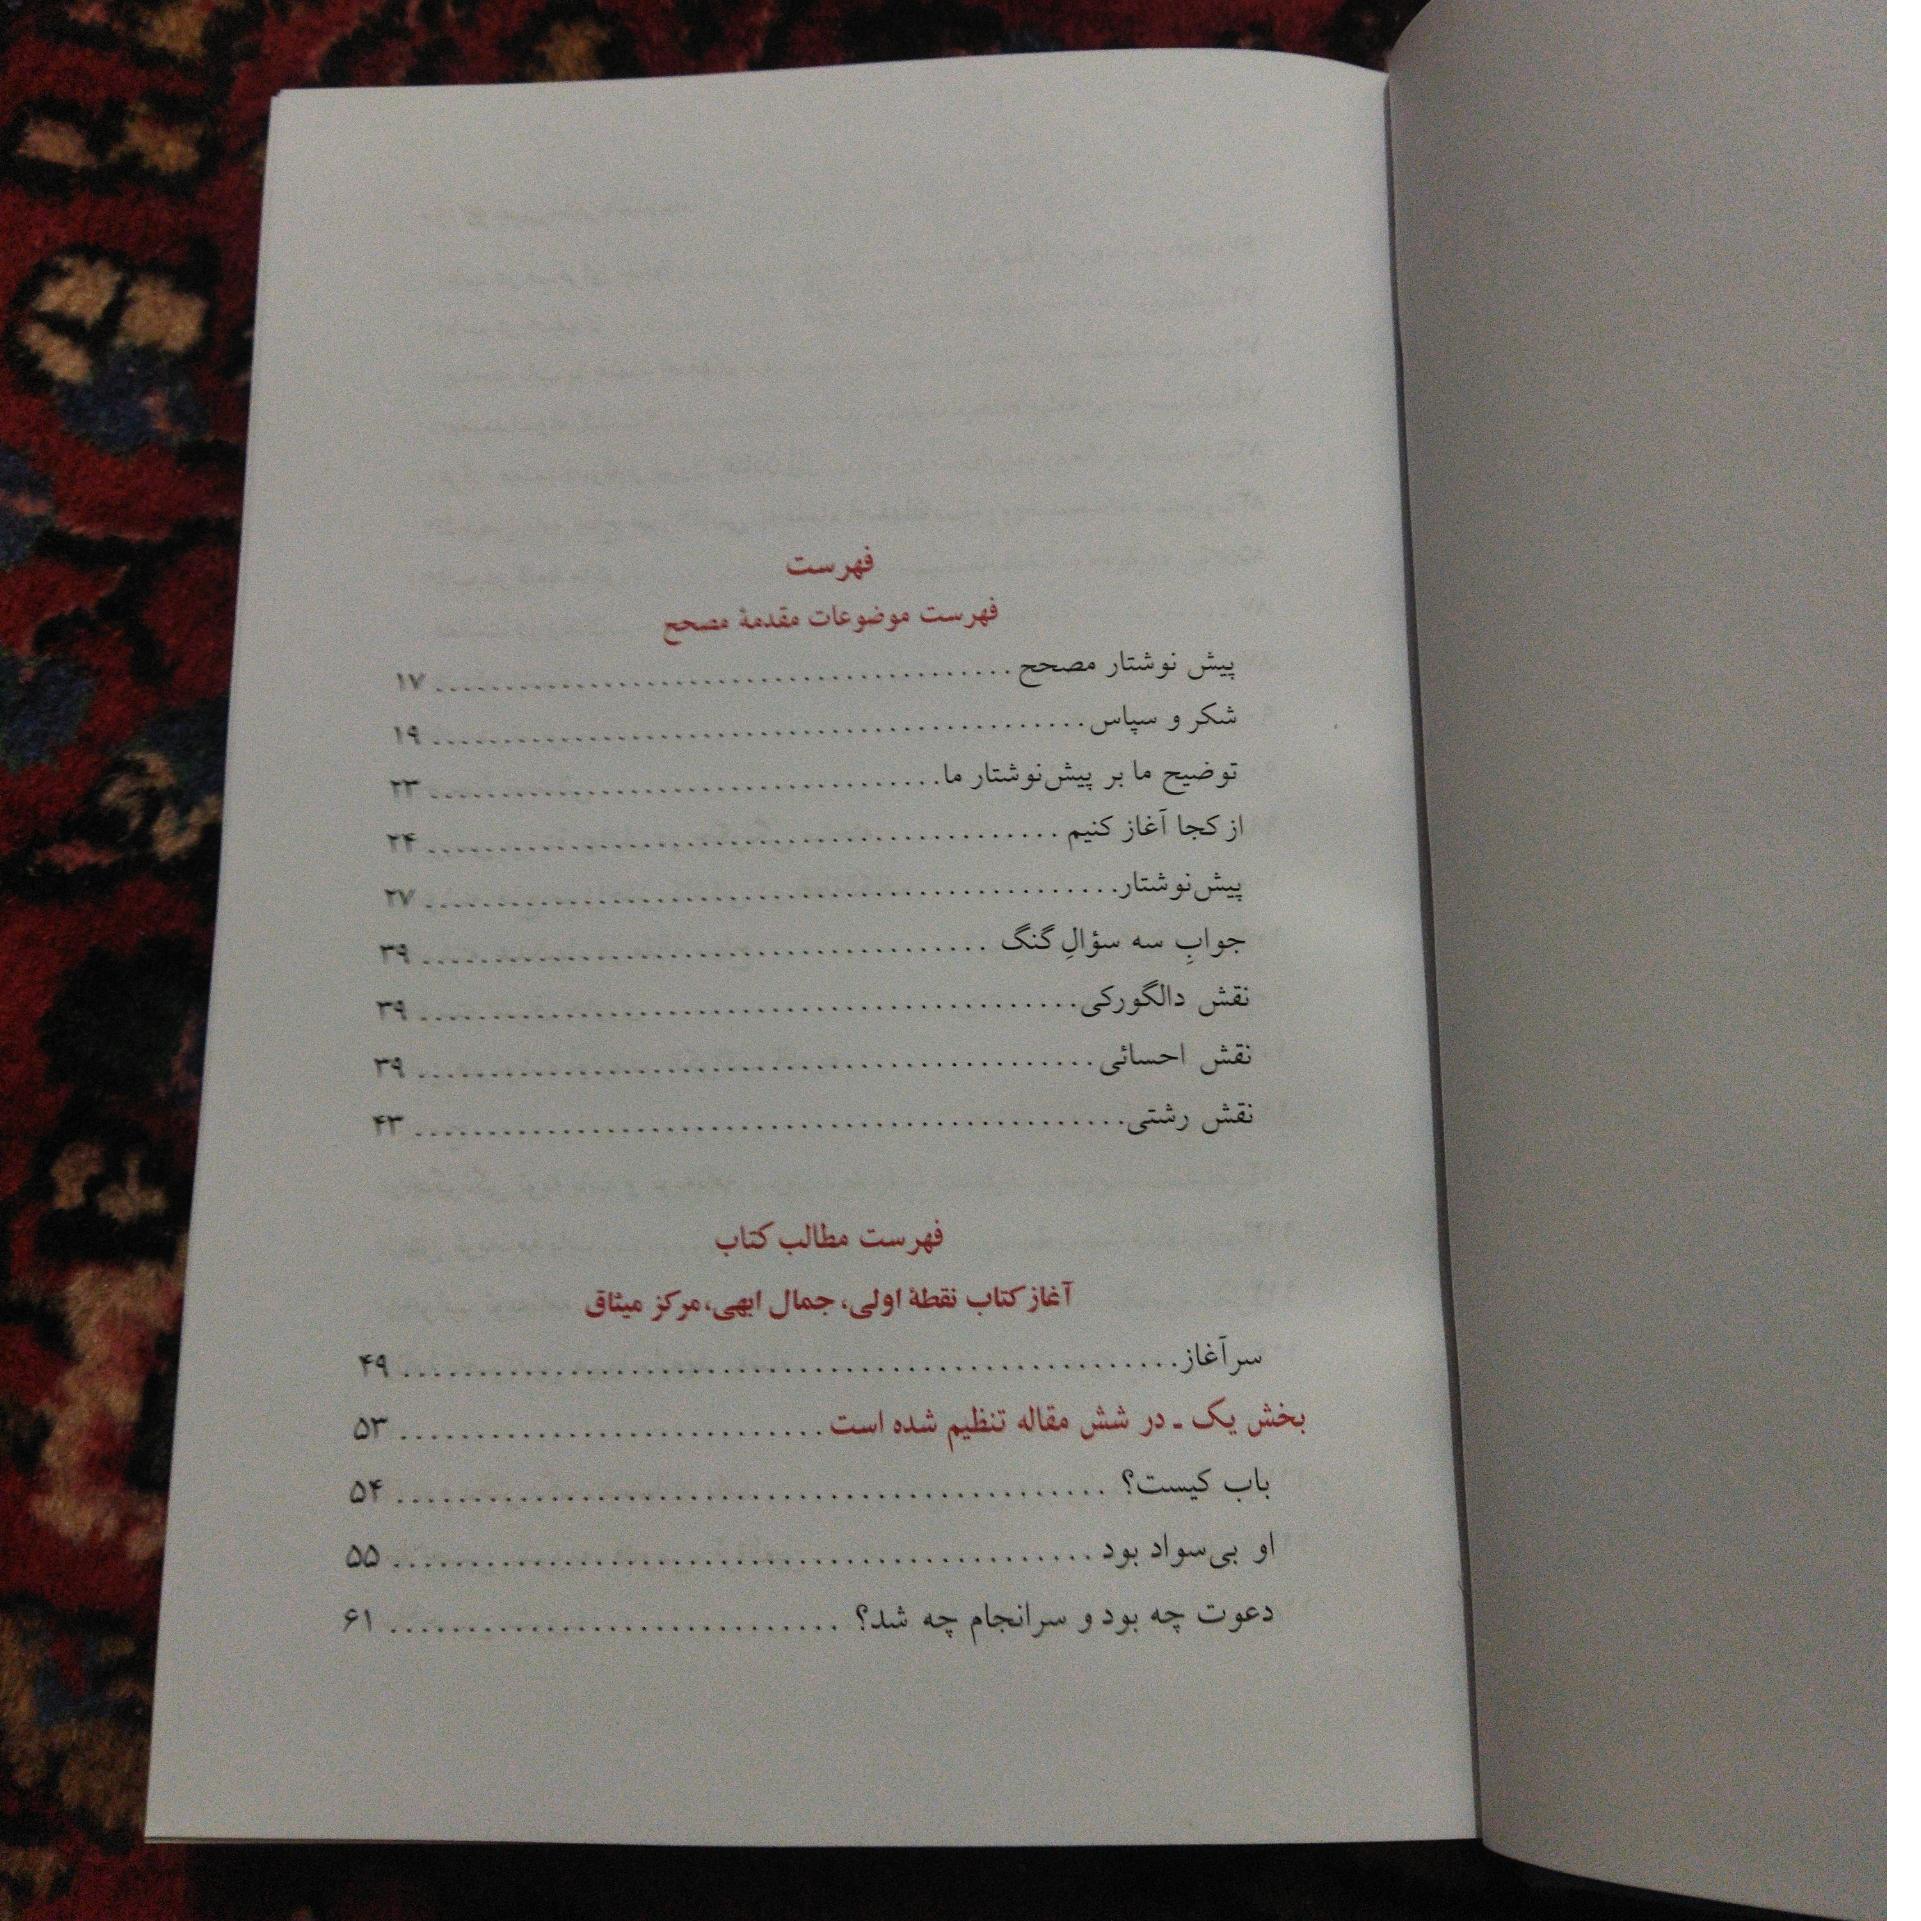 فهرست
فهرست موضوعات مقدمهٔ مصحح
پیش نوشتار مصحح ........................................ ۱۷
شکر و سپاس ........................................ ۱۹
توضیح ما بر پیش‌نوشتار ما ........................................ ۲۳
از کجا آغاز کنیم ........................................ ۲۴
پیش‌نوشتار ........................................ ۲۷
جوابِ سه سؤالِ گنگ ........................................ ۳۹
نقش دالگورکی ........................................ ۳۹
نقش احسائی ........................................ ۳۹
نقش رشتی ........................................ ۴۳
فهرست مطالب کتاب
آغاز کتاب نقطهٔ اولی، جمال ابهی، مرکز میثاق
سرآغاز ........................................ ۴۹
بخش یک ـ در شش مقاله تنظیم شده است ........................................ ۵۳
باب کیست؟ ........................................ ۵۴
او بی‌سواد بود ........................................ ۵۵
دعوت چه بود و سرانجام چه شد؟ ........................................ ۶۱